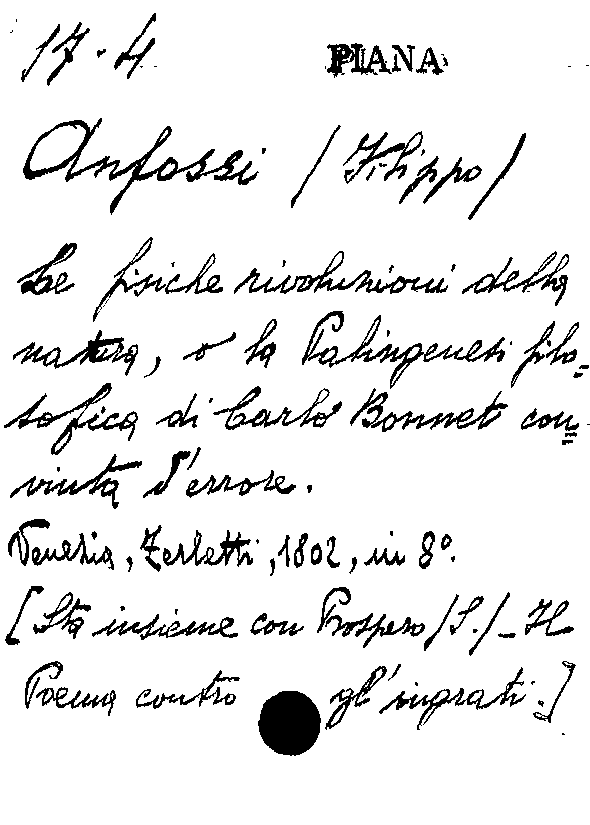 17.4 PIANA
Anfossi (Filippo)
Le fisiche rivoluzioni della
natura, o la Palingenesi filo=
sofica di Carlo Bonnet con=
vinta d'errore.
Venezia, Zerletti, 1802, in 8°.
[Sta insieme con Prospero (S.) - Il
Poema contro gl'ingrati.]